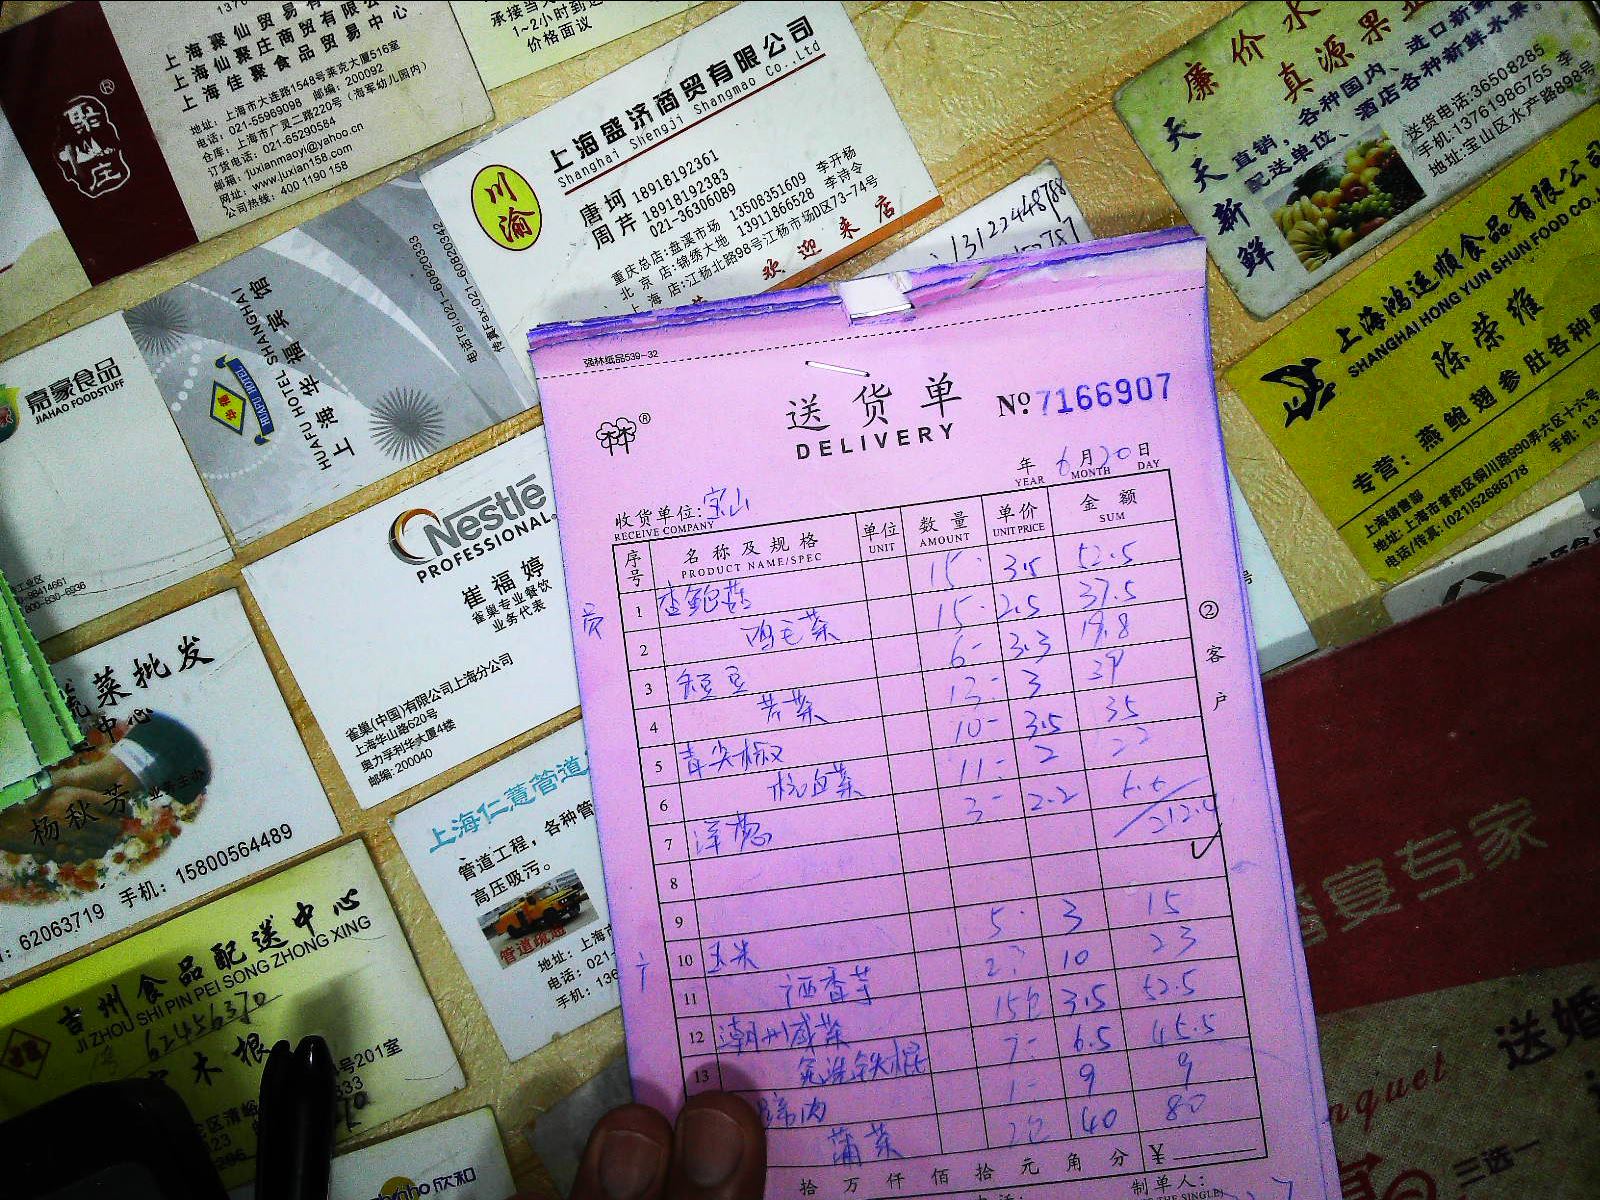 上海聚仙贸易有
上海仙聚庄商贸有限公
上海佳聚食品贸易中心
地址：上海市大连路1548号莱克大厦516室
电话：021-55969098 邮编：200092
仓库：上海市广灵二路220号（海军幼儿园内）
订货电话：021-65290584
邮箱：juxianmaoyi@yahoo.cn
网址：www.juxian158.com
公司热线：400 1190 158
聚仙庄
承接当天
1~2小时到达
价格面议
上海盛济商贸有限公司
Shanghai Shengji Shangmao Co.,Ltd
川渝
唐坷 18918192361
周芹 18918192383
021-36306089
重庆总店:盘溪市场 13508351609 李开杨
北京店:锦绣大地 13911866528 李诗令
上海店:江杨北路98号江杨市场D区73-74号
欢迎来店
13122448768
廉价水
真源果业
天天新鲜
直销，各种国内、进口新鲜
配送单位、酒店各种新鲜水果。
送货电话:36508285
手机:13761986755 李
地址:宝山区水产路898号
上海鸿运顺食品有限公司
SHANGHAI HONG YUN SHUN FOOD CO.,
陈荣雄
专营：燕鲍翅参肚各种
上海销售部
地址:上海市普陀区铜川路990弄六区十六号
电话/传真:(021)52686778
嘉豪食品
JIAHAO FOODSTUFF
上海华福宾馆
HUAFU HOTEL SHANGHAI
HUAFU HOTEL
电话Tel:021-60820333
传真Fax:021-60820342
Nestlé
PROFESSIONAL
崔福婷
雀巢专业餐饮
业务代表
雀巢(中国)有限公司上海分公司
上海华山路620号
奥力孚利华大厦4楼
邮编:200040
菜批发
中心
杨秋芳
手机：15800564489
62063719
上海仁薏管道
管道工程，各种管
高压吸污。
管道疏通
地址：上海市
电话：021-
手机：136
吉州食品配送中心
JI ZHOU SHI PIN PEI SONG ZHONG XING
62456370
木根
号201室
欣和
婚宴专家
送婚
nquet
三选一
强林纸品539-32
送货单
DELIVERY
No.7166907
年 6月20日
YEAR MONTH DAY
收货单位:宝山
RECEIVE COMPANY
序号 名称及规格 单位 数量 单价 金额
PRODUCT NAME/SPEC UNIT AMOUNT UNIT PRICE SUM
1 杏鲍菇 15 3.5 52.5
2 鸡毛菜 15 2.5 37.5
3 短豆 6 3.3 19.8
4 苦菜 13 3 39
5 青尖椒 10 3.5 35
6 杭白菜 11 2 22
7 洋葱 3 2.2 6.6
212.4
8
9
10 玉米 5 3 15
11 10 23
12 潮州咸菜 15包 3.5 52.5
13 铁棍 7 6.5 45.5
蹄肉 1 9 9
蒲菜 2包 40 80
拾万仟佰拾元角分 ¥
制单人：
②客户